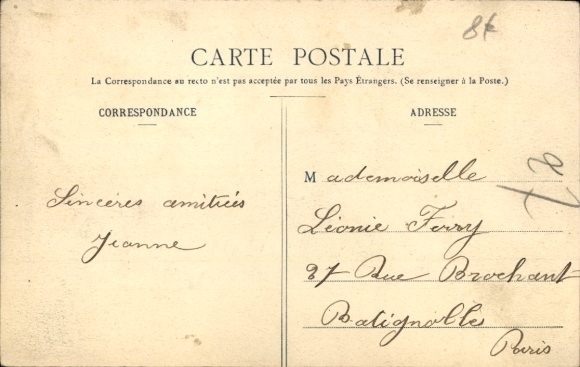 8t
CARTE POSTALE
La Correspondance au recto n'est pas acceptée par tous les Pays Étrangers. (Se renseigner à la Poste.)
CORRESPONDANCE
ADRESSE
Sincères amitiées
Jeanne
Mademoiselle
Léonie Ferry
27 Rue Brochant
Batignolles
Paris